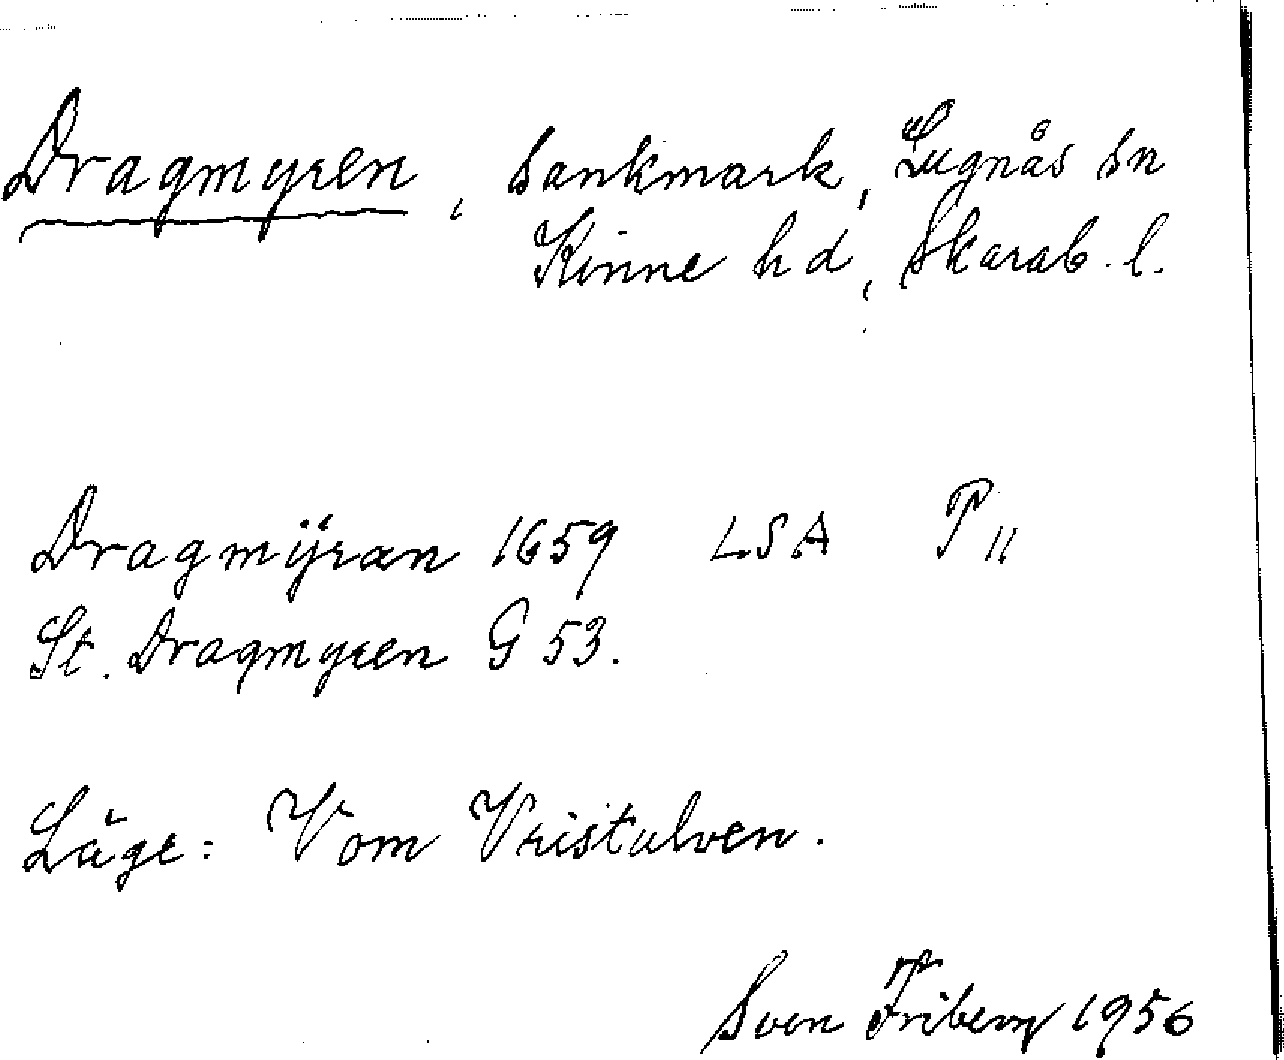 Dragmyren, sankmark, Lugnås sn
Kinne hd, Skarab. l.
Dragmÿran 1659 LSA P 11
St. Dragmyren G 53.
Läge: V om Vristulven.
Sven Friberg 1956